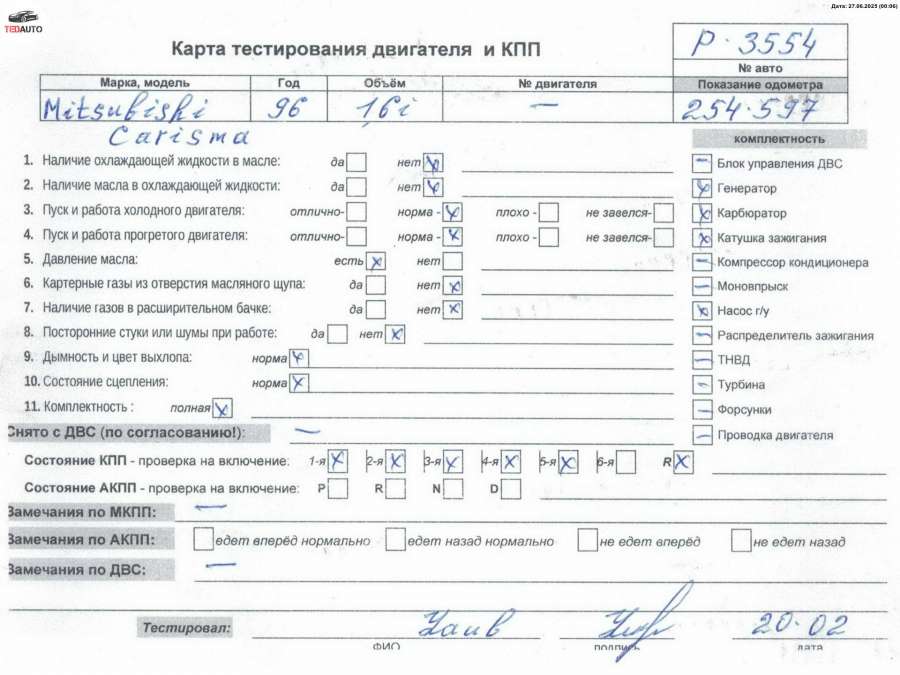 Дата: 27.06.2025 (00:06)
TEDAUTO
Карта тестирования двигателя и КПП
P-3554
№ авто
Марка, модель Год Объём № двигателя Показание одометра
Mitsubishi 96 1,6i — 254.597
Carisma
комплектность
1. Наличие охлаждающей жидкости в масле: да нет
2. Наличие масла в охлаждающей жидкости: да нет
3. Пуск и работа холодного двигателя: отлично- норма - плохо - не завелся-
4. Пуск и работа прогретого двигателя: отлично- норма - плохо - не завелся-
5. Давление масла: есть нет
6. Картерные газы из отверстия масляного щупа: да нет
7. Наличие газов в расширительном бачке: да нет
8. Посторонние стуки или шумы при работе: да нет
9. Дымность и цвет выхлопа: норма
10. Состояние сцепления: норма
11. Комплектность : полная
Блок управления ДВС
Генератор
Карбюратор
Катушка зажигания
Компрессор кондиционера
Моновпрыск
Насос г/у
Распределитель зажигания
ТНВД
Турбина
Форсунки
Проводка двигателя
Снято с ДВС (по согласованию!): —
Состояние КПП - проверка на включение: 1-я 2-я 3-я 4-я 5-я 6-я R
Состояние АКПП - проверка на включение: P R N D
Замечания по МКПП: —
Замечания по АКПП: едет вперёд нормально едет назад нормально не едет вперёд не едет назад
Замечания по ДВС: —
Тестировал: 20-02
ФИО подпись дата